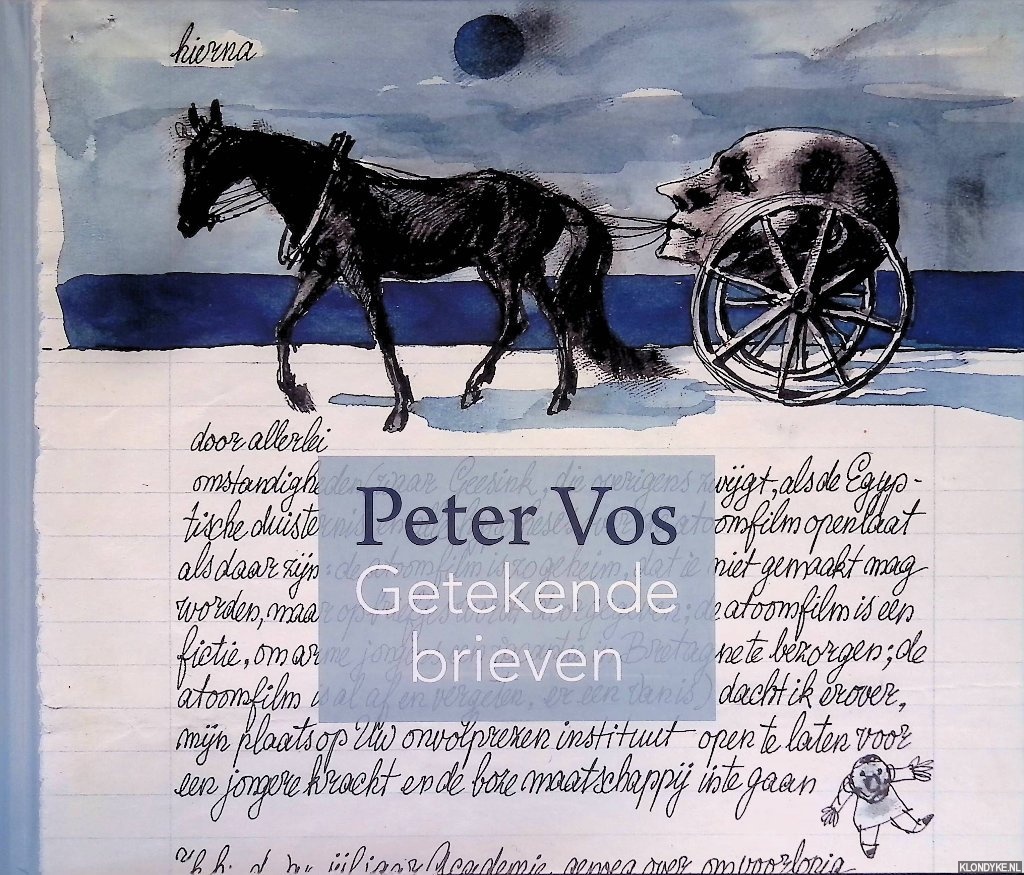 hierna
door allerlei
omstandigheden (waar Geesink, die overigens zwijgt, als de Egyp-
tische duisternis atoomfilm openlaat
als daar zijn: de atoomfilm is zo geheim, dat ie niet gemaakt mag
worden, maar op doorgegeven; de atoomfilm is een
fictie, om arme jonge in Bretagne te bezorgen; de
atoomfilm is al af en vergeten, er een dachtik erover,
mijn plaats op Uw onvolprezen instituut open te laten voor
een jongere kracht en de boze maatschappij in te gaan
Academie, genoeg over
Peter Vos
Getekende
brieven
KLONDYKE.NL